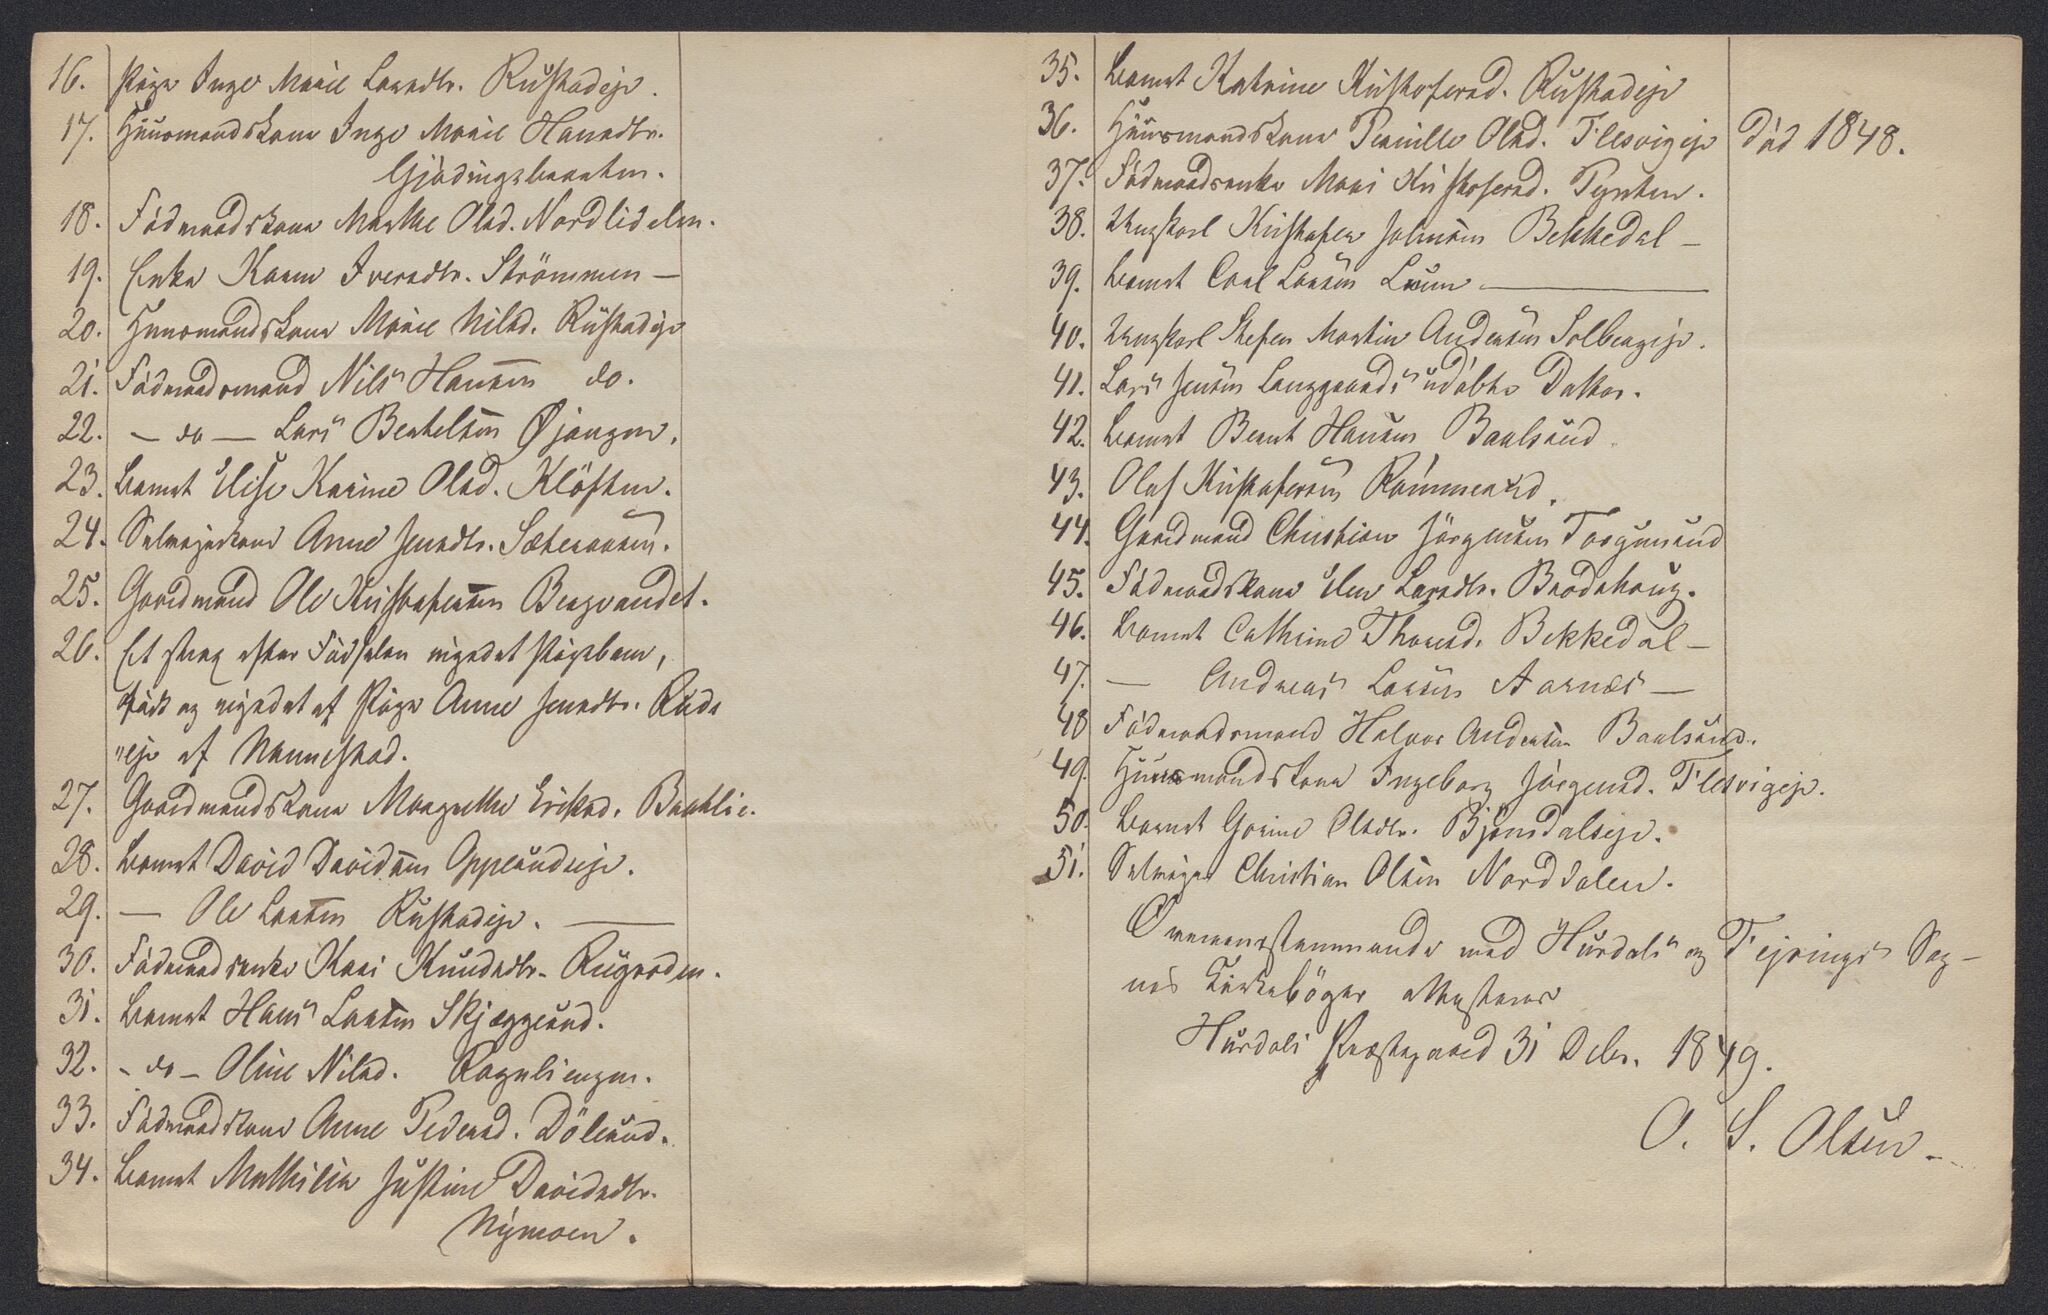 16. Pige Inge Marie Larsdtr. Rustadeje.
17. Huusmandskone Inge Marie Hansdtr.
Gjödingsbraaten.
18. Födraadskone Marthe Olsd. Nordlidalen.
19. Enke Karen Iversdtr. Strömmen —
20. Huusmandskone Marie Nilsd. Rustadeje
21. Födraadsmand Nils Hansen do.
22. — do — Lars Bertelsen Øjangen.
23. Barnet Elise Karine Olsd. Klöften.
24. Selvejerkone Anne Jensdtr. Sæteraasen.
25. Gaardmand Ole Kristofersen Bergvandet.
26. Et strax efter Födselen myrdet Pigebarn,
födt og myrdet af Pige Anne Jensdtr. Ruds
"eje af Nannestad.
27. Gaardmandskone Margrethe Eriksd. Brathlie.
28. Barnet David Davidsen Opplundseje.
29. — Ole Larsen Rustadeje. —
30. Födraadsenke Kari Knudsdtr. Rugaaden.
31. Barnet Hans Larsen Skjæggrud.
32. - do - Oline Nilsd. Rognliengen.
33. Födraadskone Anne Pedersd. Dölerud.
34. Barnet Mathilia Justine Davidsdtr.
Nymoen.
35. Barnet Katrine Kristofersd. Rustadeje
36. Huusmandskone Pernille Olsd. Flesvigeje död 1848.
37. Födraadsenke Mari Kristofersd. Pynten.
38. Ungkarl Kristofer Johnsen Bekkedal —
39. Barnet Carl Larsen Luun —
40. Ungkarl Steffen Martin Andersen Solbergeje.
41. Lars Jensen Langgaards udöbte Datter.
42. Barnet Bernt Hansen Baalsrud.
43. Oluf Kristofersen Rommerud.
44. Gaardmand Christian Jörgensen Torgunrud
45. Födraadskone Elen Larsdtr. Brodshoug.
46. Barnet Cathrine Thorsd. Bekkedal —
47. — Andreas Larsen Aarnæs —
48 Födraadsmand Halvor Andersen Baalsrud.
49. Huusmandskone Ingeborg Jörgensd. Flesvigeje.
50. Barnet Gorine Olsdtr. Bjöndalseje.
51. Selvejer Christian Olsen Norddalen.
Overensstemmende med Hurdals og Fejrings Sog-
nes Kirkeböger attesteres
Hurdals Præstegaard 31 Decbr. 1849.
O. S. Olsen —